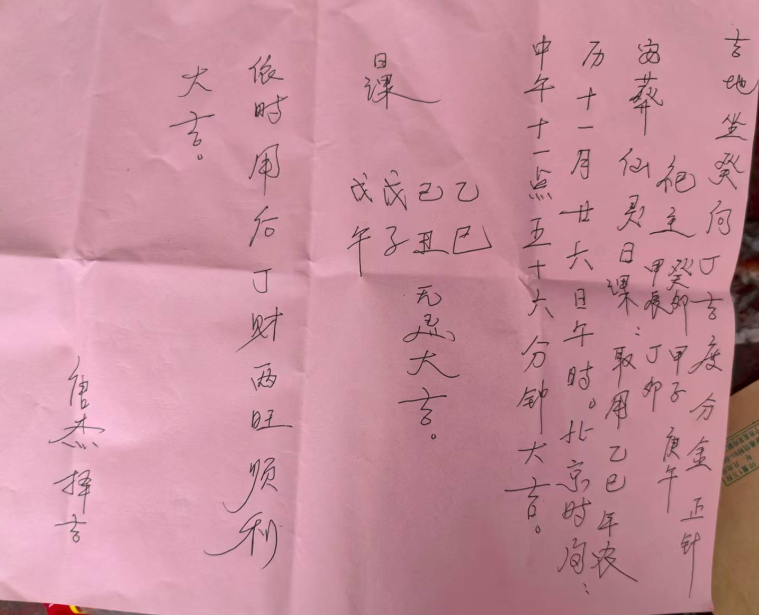 吉地坐癸向丁吉度分金 正针
祀主 癸卯 甲子 庚午
甲辰 丁卯
安葬仙灵日课：取用乙巳年农
历十一月廿六日午时。北京时间：
中午十一点五十六分钟大吉。
日课
乙巳
己丑
戊子
戊午
无忌大吉。
依时用后丁财两旺顺利
大吉。
唐杰择吉